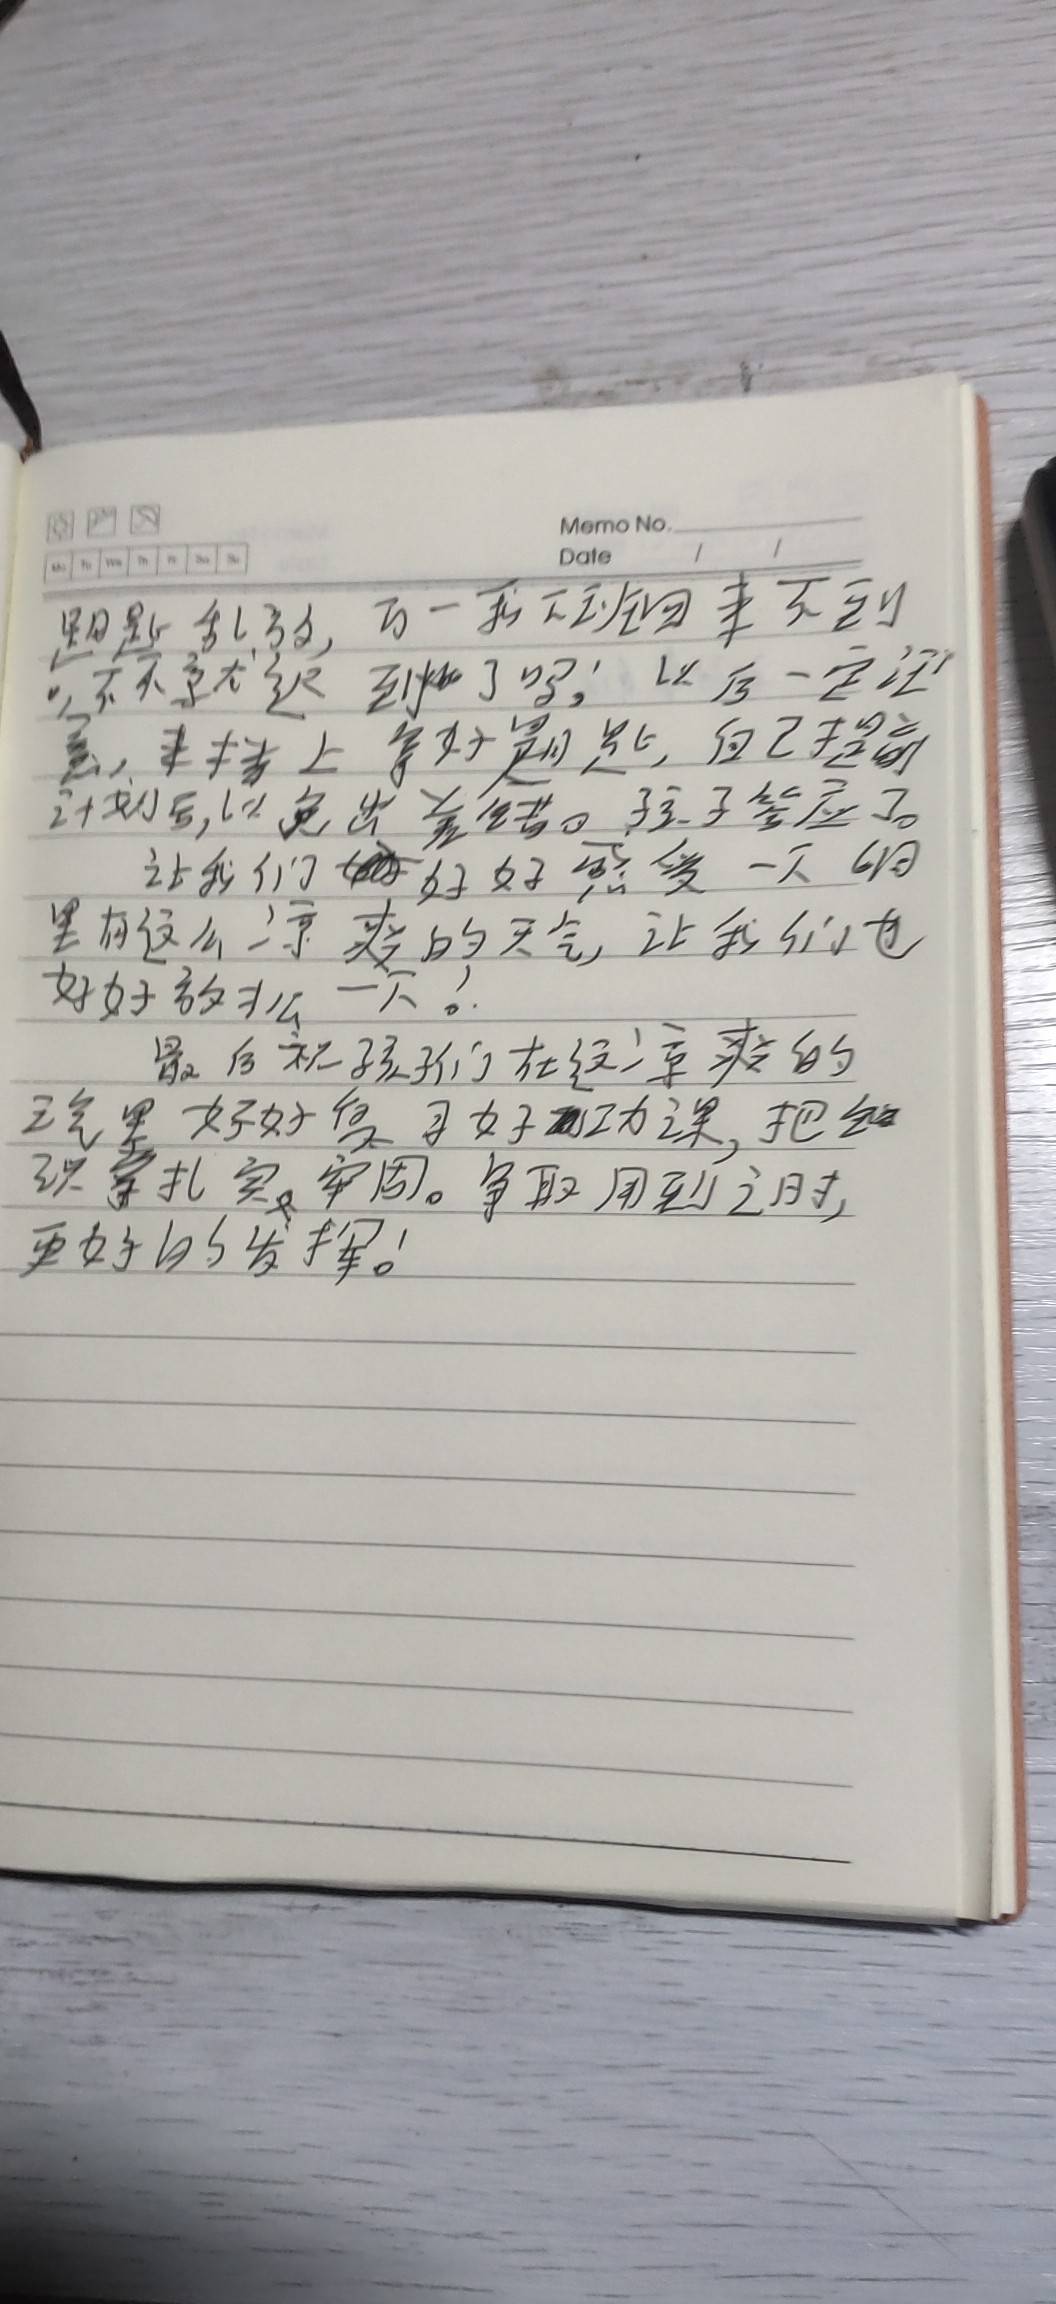 Memo No.
Date / /
Mo Tu We Th Fr Sa Su
乱放, 万一我不到 来不到
到 了吗! 以后一定注
意, 早 上 拿好 , 自己提前
计划 , 以免出差错。孩子答应了。
让我们 好好感受一下 6月
里有这么凉爽的天气, 让我们也
好好放松一下!
最后祝孩子们在这凉爽的
天气里 好好复习好功课, 把知
识 扎实, 牢固。争取用到之时,
更好的发挥!